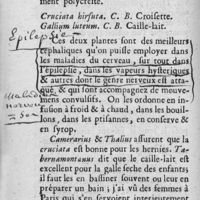 ment polycreste.
Cruciata hirsuta. C. B. Croisette.
Gallium luteum. C. B. Caille-lait.
Epilepsie
Ces deux plantes sont des meilleurs
cephaliques qu'on puisse employer dans
les maladies du cerveau, sur tout dans
l'epilepsie, dans les vapeurs hysteriques
& autres dont le genre nerveux est atta-
qué, & qui sont accompagnez de mouve-
mens convulsifs. On les ordonne en in-
fusion à froid & à chaud, dans les bouil-
lons, dans les ptisannes, en conserve &
en syrop.
Camerarius & Thalius assurent que la
cruciata est bonne pour les hernies. Ta-
bernamontanus dit que le caille-lait est
excellent pour la galle seche des enfans:
il faut les en bassiner souvent ou leur en
préparer un bain; j'ai vû des femmes à
Paris qui s'en servoient interieurement